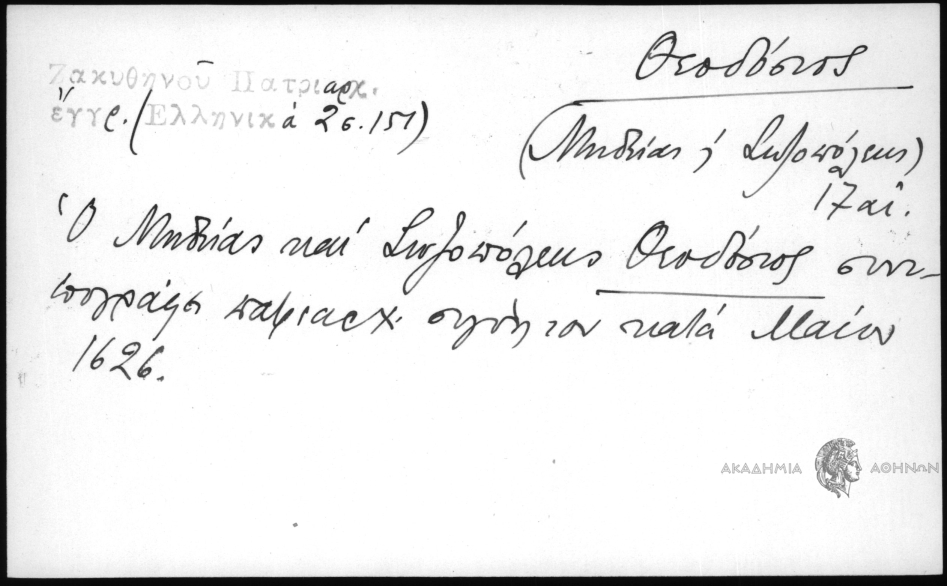 Ζακυθηνοῦ Πατριαρχ.
ἔγγρ. (Ἑλληνικά 2 σ. 151)
Θεοδόσιος
(Μηδείας ἡ Σωζοπόλεως)
17 αἰ.
Ὁ Μηδείας καί Σωζοπόλεως Θεοδόσιος συνυ-
πογράφει πατριαρχ. σιγίλλιον κατά Μαίον
1626.
ΑΚΑΔΗΜΙΑ ΑΘΗΝΩΝ